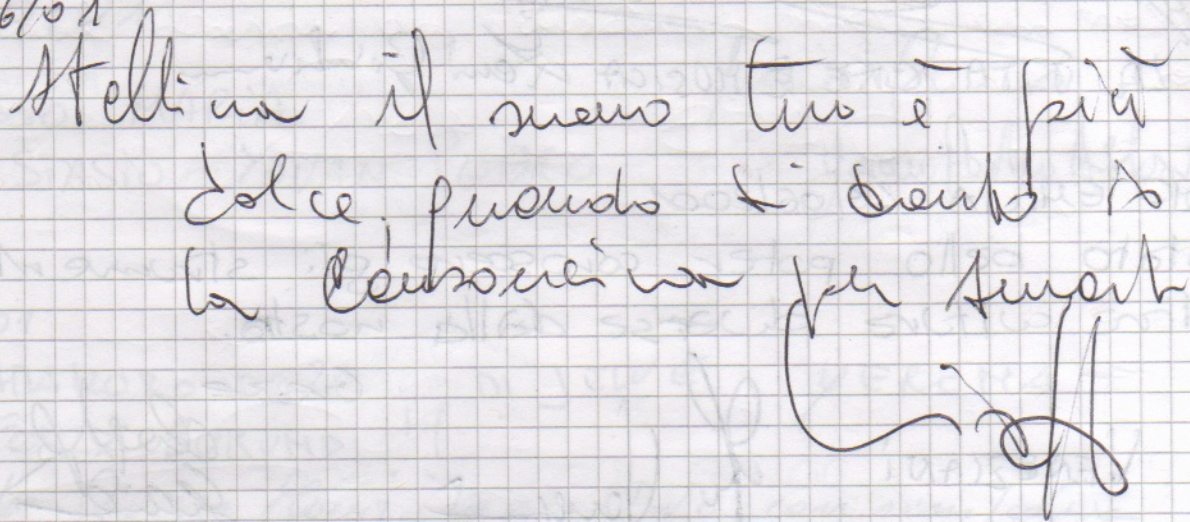 6/01
Stellina il suono tuo è più
dolce, quando ti canto io
la canzoncina per